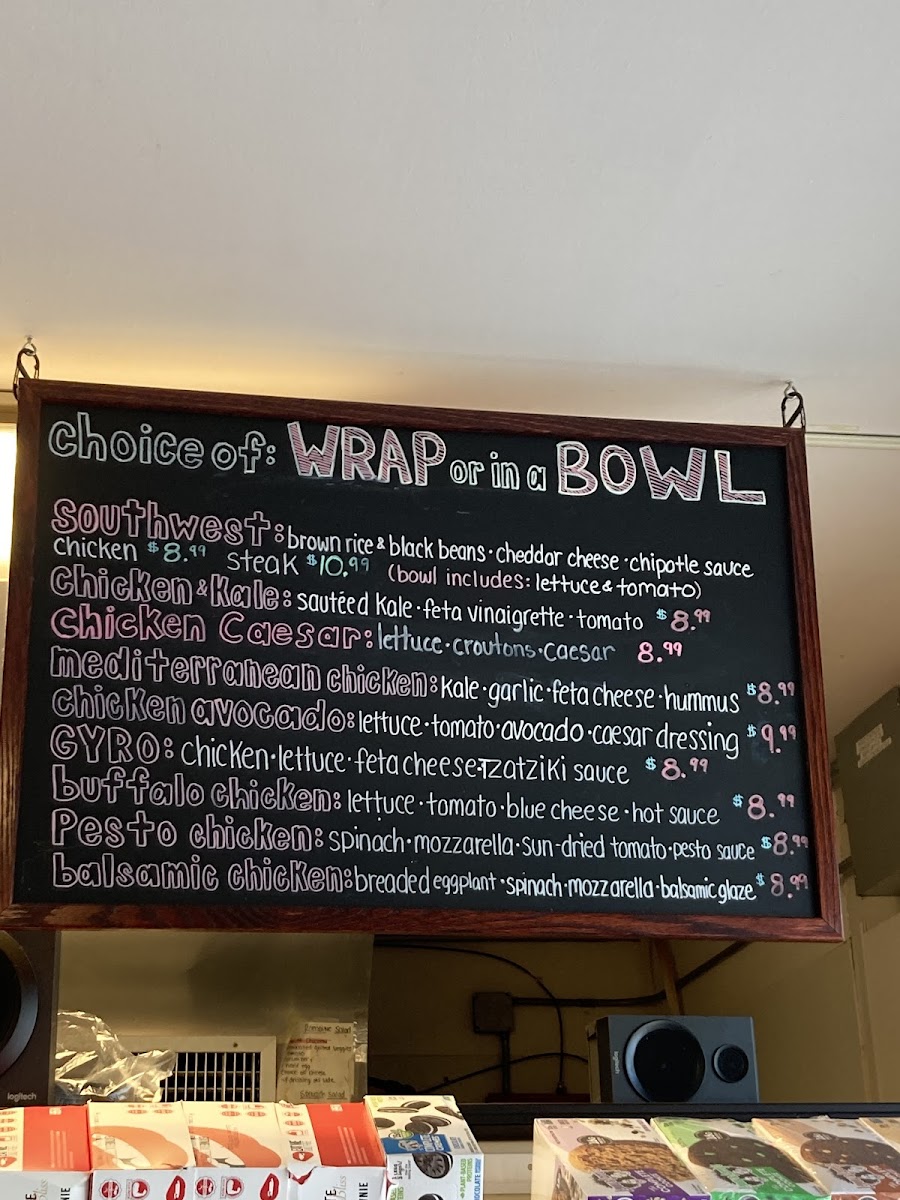 choice of: WRAP or in a BOWL
Southwest: brown rice & black beans · cheddar cheese · chipotle sauce
chicken $8.99 steak $10.99 (bowl includes: lettuce & tomato)
chicken & kale: sautéed kale · feta vinaigrette · tomato $8.99
chicken Caesar: lettuce · croutons · caesar 8.99
mediterranean chicken: kale · garlic · feta cheese · hummus $8.99
chicken avocado: lettuce · tomato · avocado · caesar dressing $9.99
GYRO: chicken · lettuce · feta cheese · TZatziki sauce $8.99
buffalo chicken: lettuce · tomato · blue cheese · hot sauce $8.99
Pesto chicken: spinach · mozzarella · sun-dried tomato · pesto sauce $8.99
balsamic chicken: breaded eggplant · spinach · mozzarella · balsamic glaze $8.99
Romaine Salad
logitech
logitech